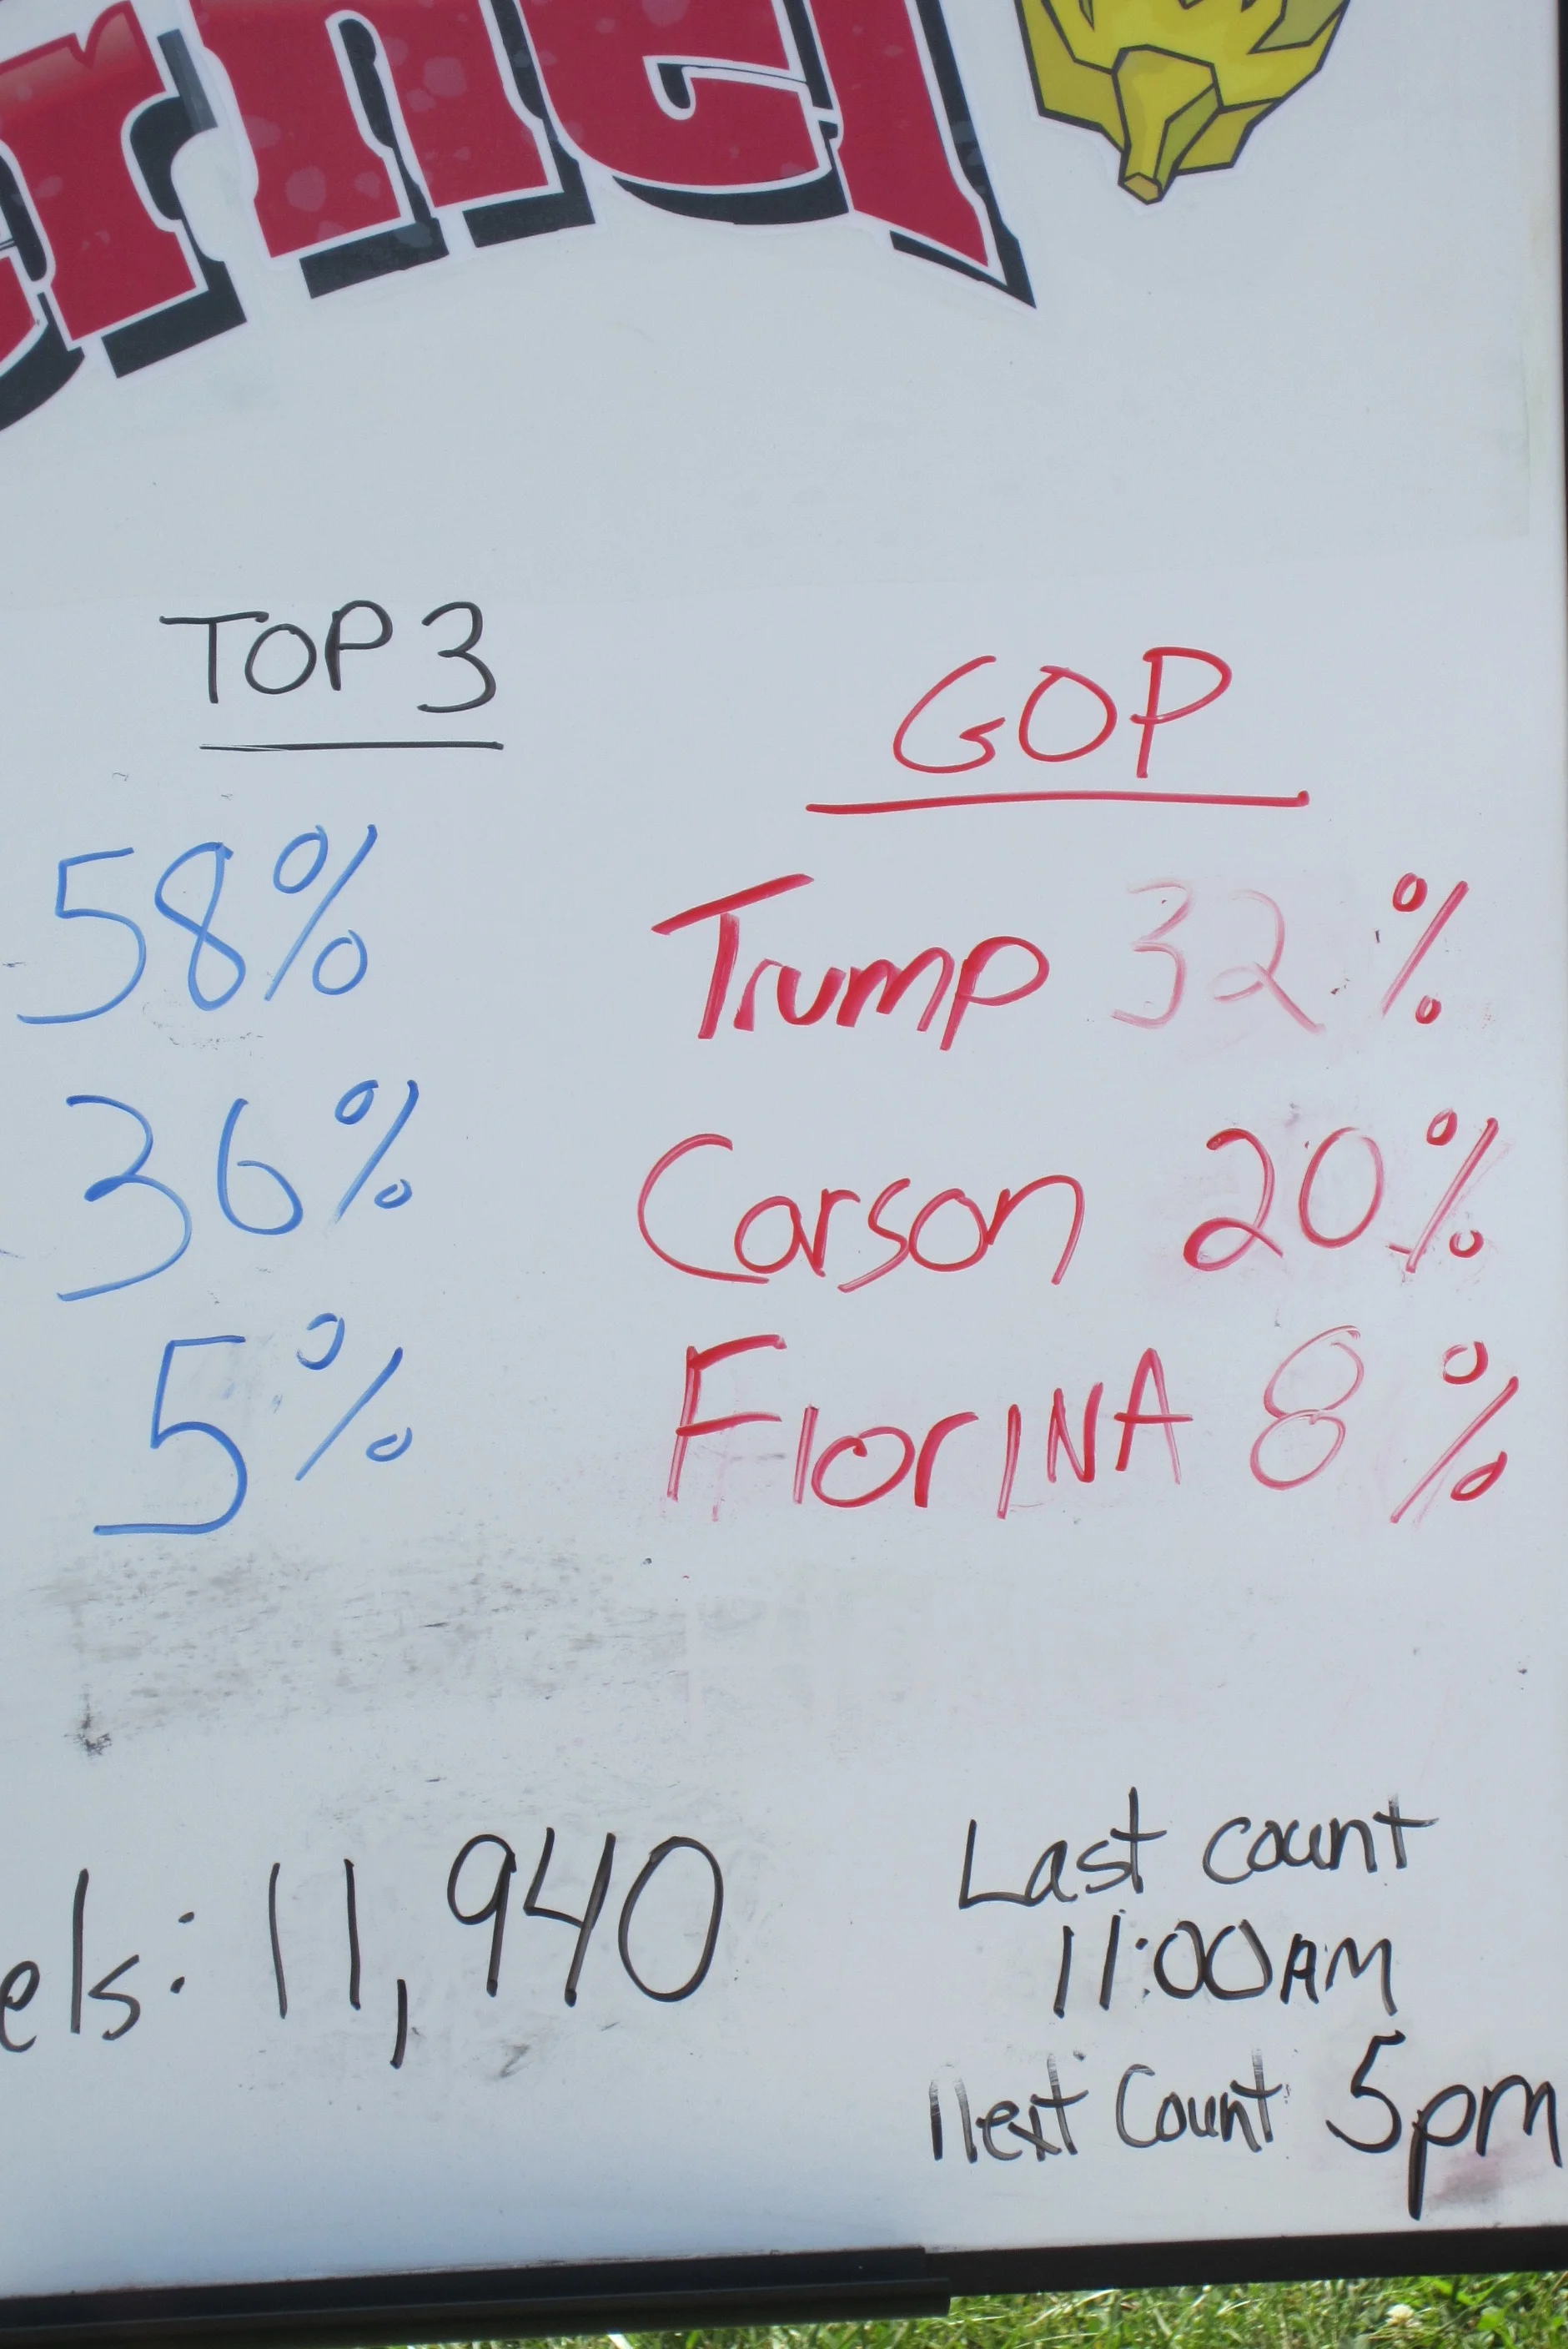 ernel
TOP 3
GOP
58%
Trump 32%
36%
Carson 20%
5%
FIorINA 8%
els: 11,940
Last count
11:00AM
next Count 5pm